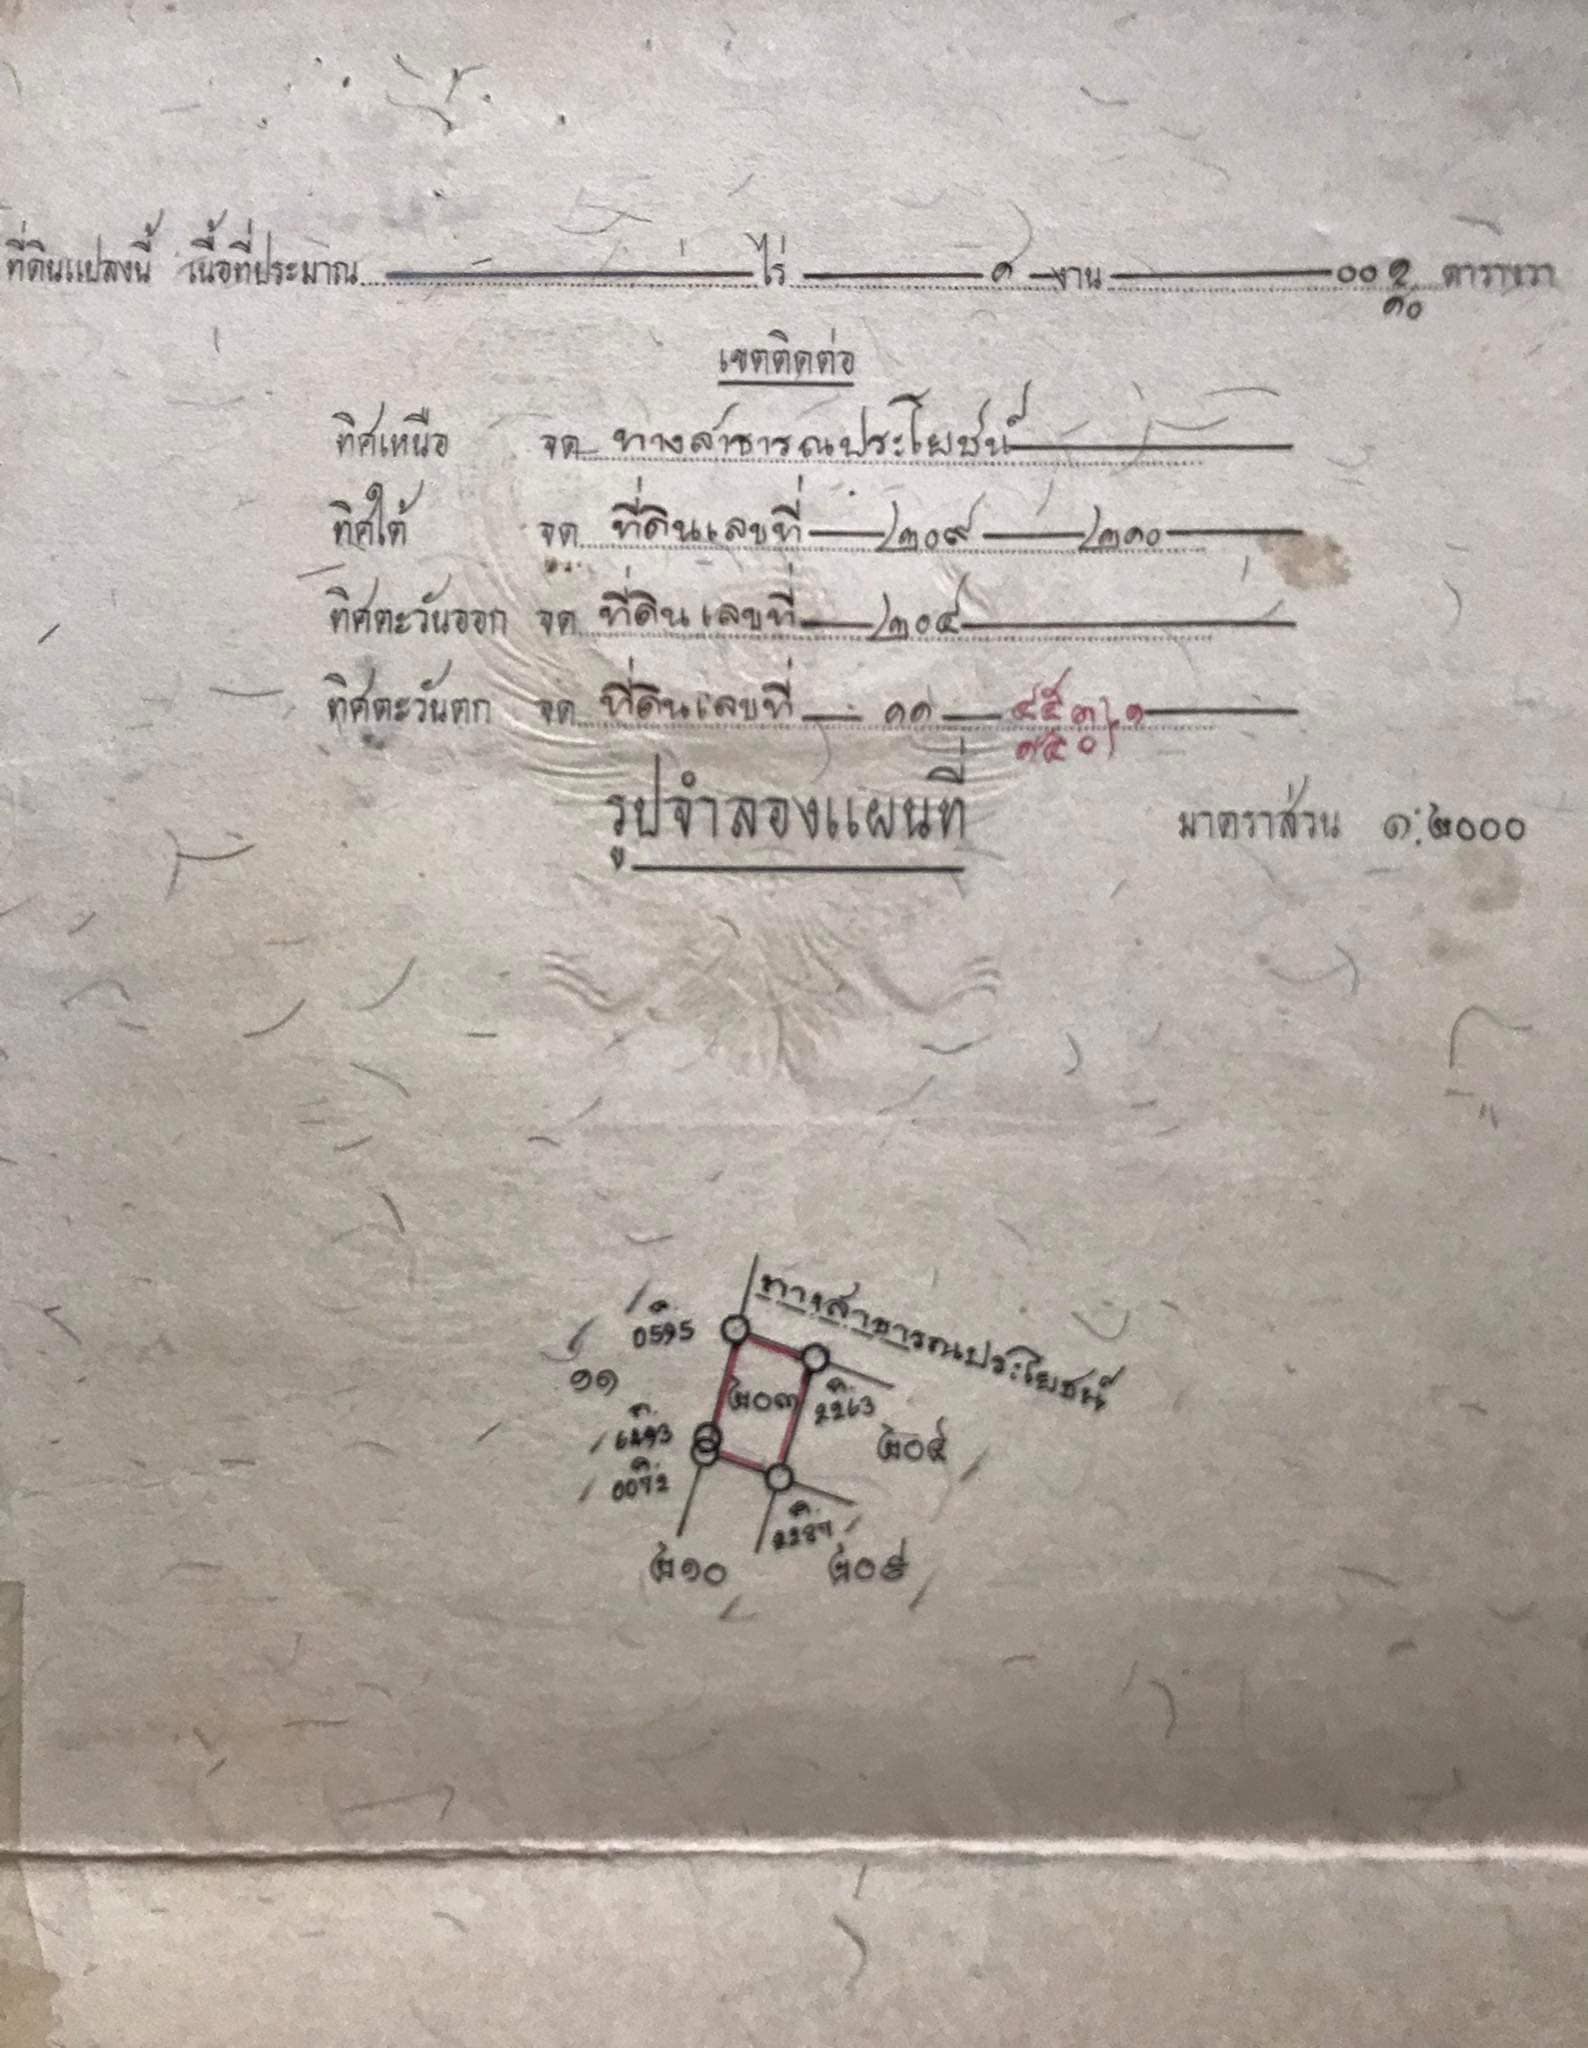 ที่ดินแปลงนี้ เนื้อที่ประมาณ ไร่ ๑ งาน ๐๐ ๒/๑๐ ตารางวา
เขตติดต่อ
ทิศเหนือ จด ทางสาธารณประโยชน์
ทิศใต้ จด ที่ดินเลขที่ ๒๐๙ ๒๑๐
ทิศตะวันออก จด ที่ดินเลขที่ ๒๐๔
ทิศตะวันตก จด ที่ดินเลขที่ ๑๑
รูปจำลองแผนที่ มาตราส่วน ๑:๒๐๐๐
ทางสาธารณประโยชน์
0595
๑๑
๒๐๓
2263
๒๐๔
๒๑๐
๒๐๙